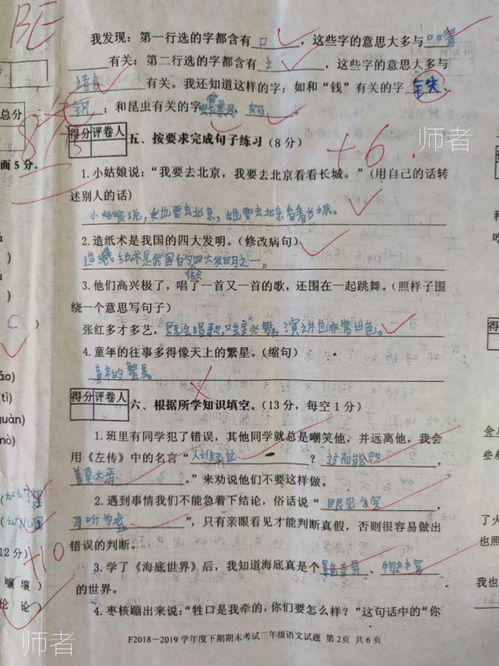 我发现：第一行选的字都含有 口 ，这些字的意思大多与
有关；第二行选的字都含有 ，这些字的意思大多与
语言 有关。我还知道这样的字：如和“钱”有关的字
铜 ；和昆虫有关的字
得分 评卷人
五、按要求完成句子练习（8分）
+6
1.小姑娘说：“我要去北京，我要去北京看看长城。”（用自己的话转
述别人的话）
小姑娘说，她要去北京，她要去北京看看长城。
2.造纸术是我国的四大发明。（修改病句）
造纸术是我国的四大发明之一。
3.他们高兴极了，唱了一首又一首的歌，还围在一起跳舞。（照样子围
绕一个意思写句子）
张红多才多艺，
4.童年的往事多得像天上的繁星。（缩句）
童年的繁星
得分 评卷人
六、根据所学知识填空。（13分，每空1分）
1.班里有同学犯了错误，其他同学就总是嘲笑他，并远离他，我会
用《左传》中的名言“ ？ 过而能改 ，
善莫大焉 。”来劝说他们不要这样做。
2.遇到事情我们不能急着下结论，俗话说“ 眼见为实 ，
耳听为虚 ”，只有亲眼看见才能判断真假，否则很容易做出
错误的判断。
3.学了《海底世界》后，我知道海底真是个 、 物产丰富
的世界。
4.枣核蹦出来说：“牲口是我牵的，你们要怎么样？”这句话中的“你
F2018－2019学年度下期期末考试三年级语文试题 第2页 共6页
总分
面5分。
C ）
12分）
+10
嚷 壤）
伦 论）
师者
师者
师者